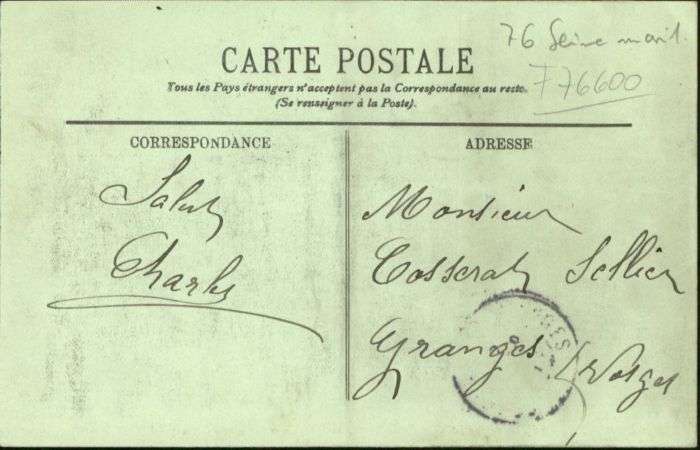 76 Seine marit.
F 76600
CARTE POSTALE
Tous les Pays étrangers n'acceptent pas la Correspondance au recto.
(Se renseigner à la Poste).
CORRESPONDANCE
Salut
Charles
ADRESSE
Monsieur
Cosserat Sellier
Granges Vosges